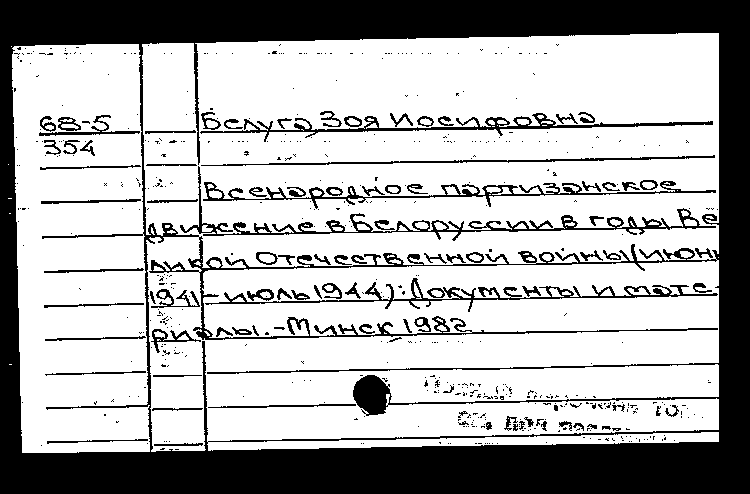 68-5 Белуга Зоя Иосифовна.
354
Всенародное партизанское
движение в Белоруссии в годы Ве
ликой Отечественной войны (июнь
1941 – июль 1944): Документы и мате-
риалы. – Минск 1982.
Полный перечень то
см. под